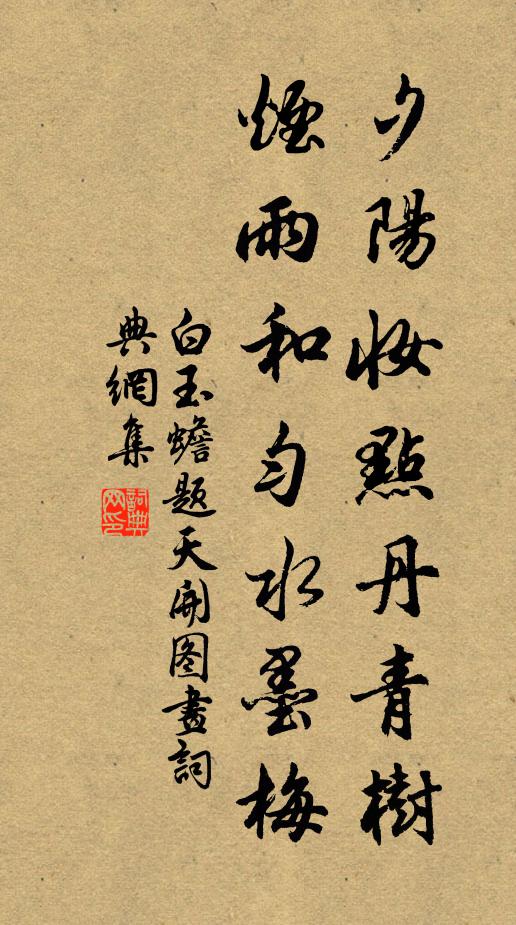 夕陽妝點丹青樹
煙雨和勻水墨梅
白玉蟾題天開图畫詞
典網集
詞典網印